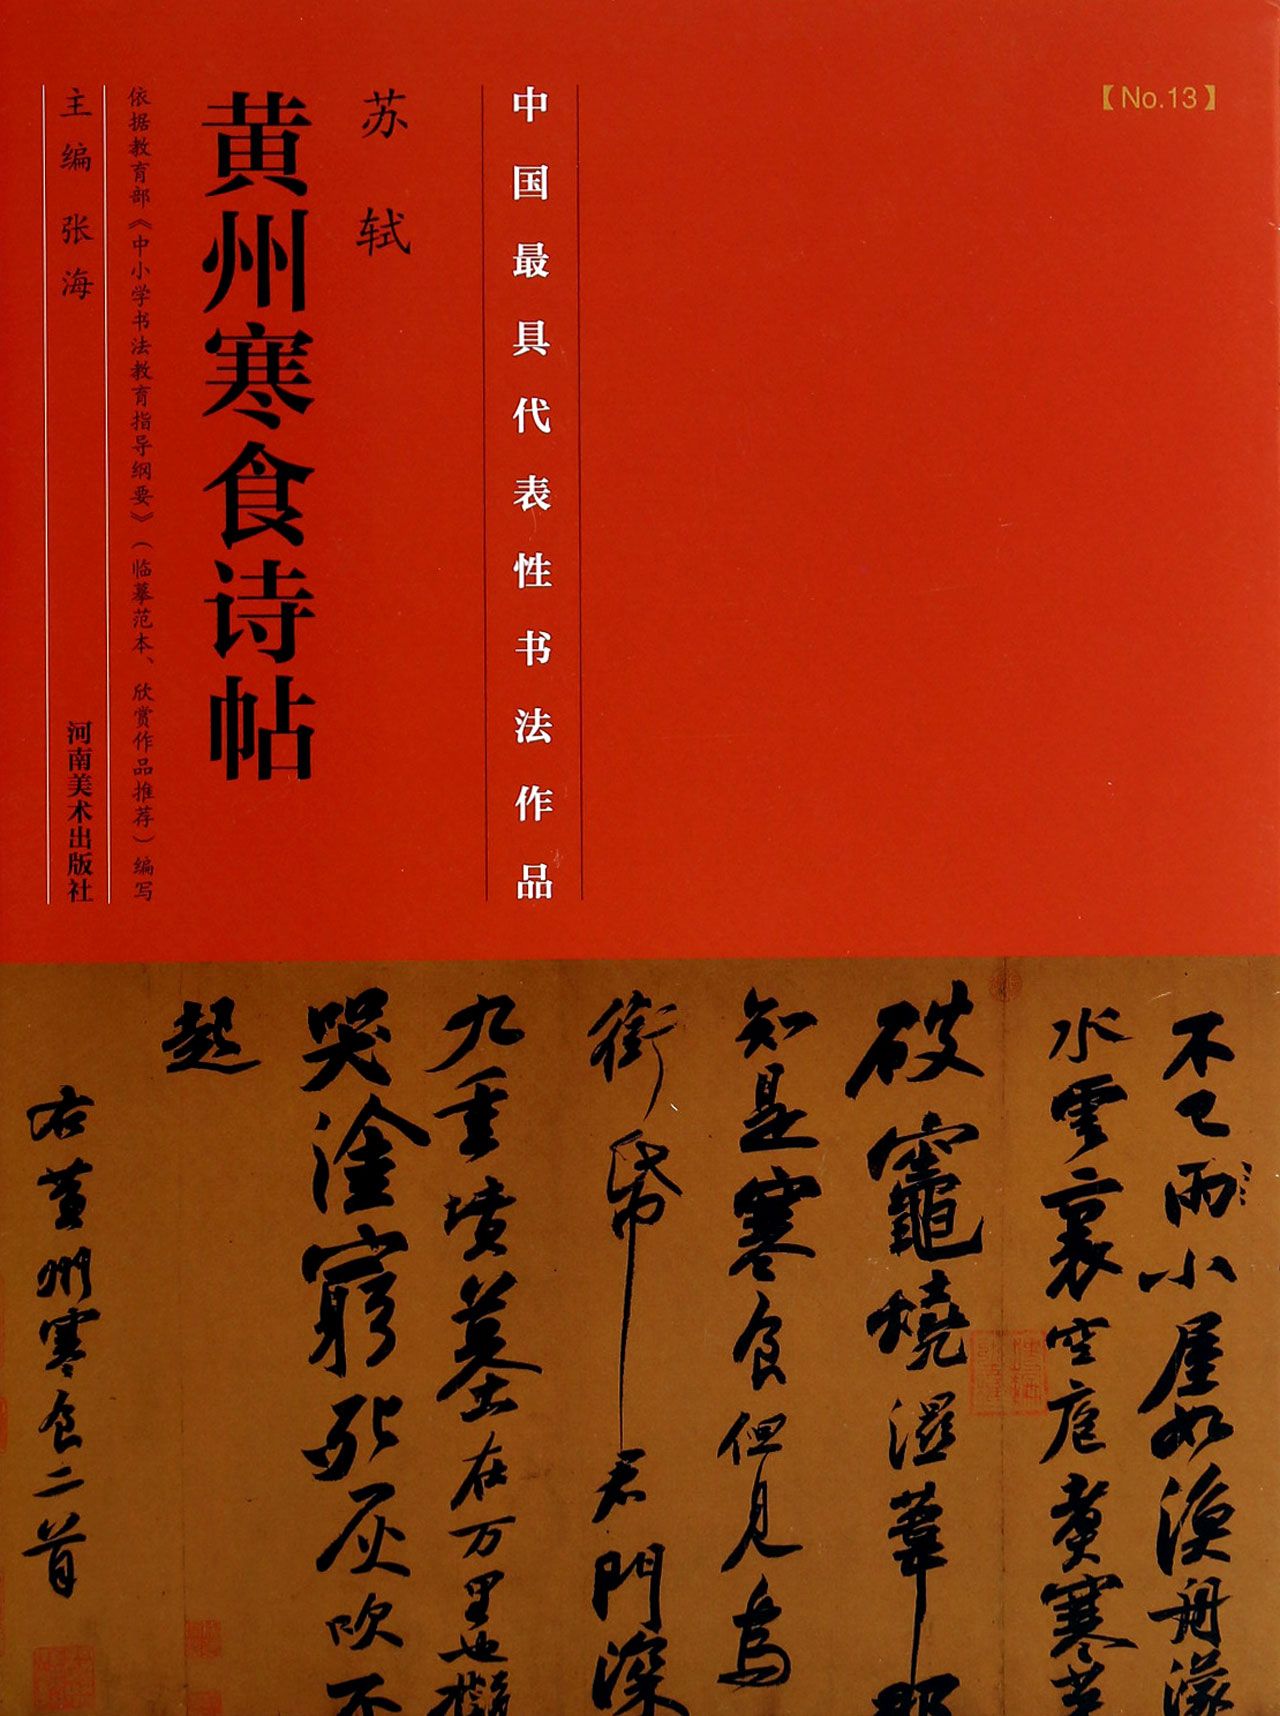 【No.13】
中国最具代表性书法作品
苏轼
黄州寒食诗帖
依据教育部《中小学书法教育指导纲要》（临摹范本、欣赏作品推荐）编写
主编 张海
河南美术出版社
不已雨小屋如渔舟濛
水雲裏空庖煮寒菜
破竈燒濕葦那
知是寒食但見烏
銜帋君門深
九重墳墓在万里也擬
哭塗窮死灰吹不
起
右黄州寒食二首